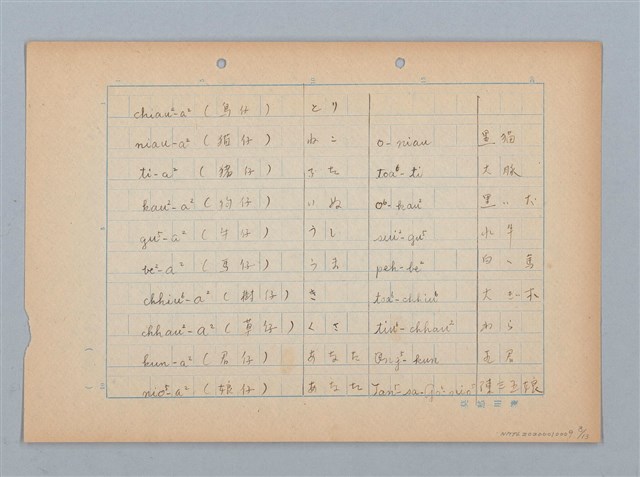 chiau²-a² ( 鳥仔 ) とり
niau-a² ( 猫仔 ) ねこ o-niau 黒猫
ti-a² ( 猪仔 ) ぶた toa⁶-ti 大豚
kau²-a² ( 狗仔 ) いぬ o⁶-kau² 黒い犬
gu⁵-a² ( 牛仔 ) うし sui²-gu⁵ 水牛
be²-a² ( 馬仔 ) うま peh-be² 白い馬
chhiu⁶-a² ( 樹仔 ) き toa⁶-chhiu⁶ 大木
chhau²-a² ( 草仔 ) くさ tiu⁶-chhau² わら
kun-a² ( 君仔 ) あなた Ông⁵-kun 王君
nio⁵-a² ( 娘仔 ) あなた Tan⁵-sa-Go⁶-nio⁵ 陳三五娘